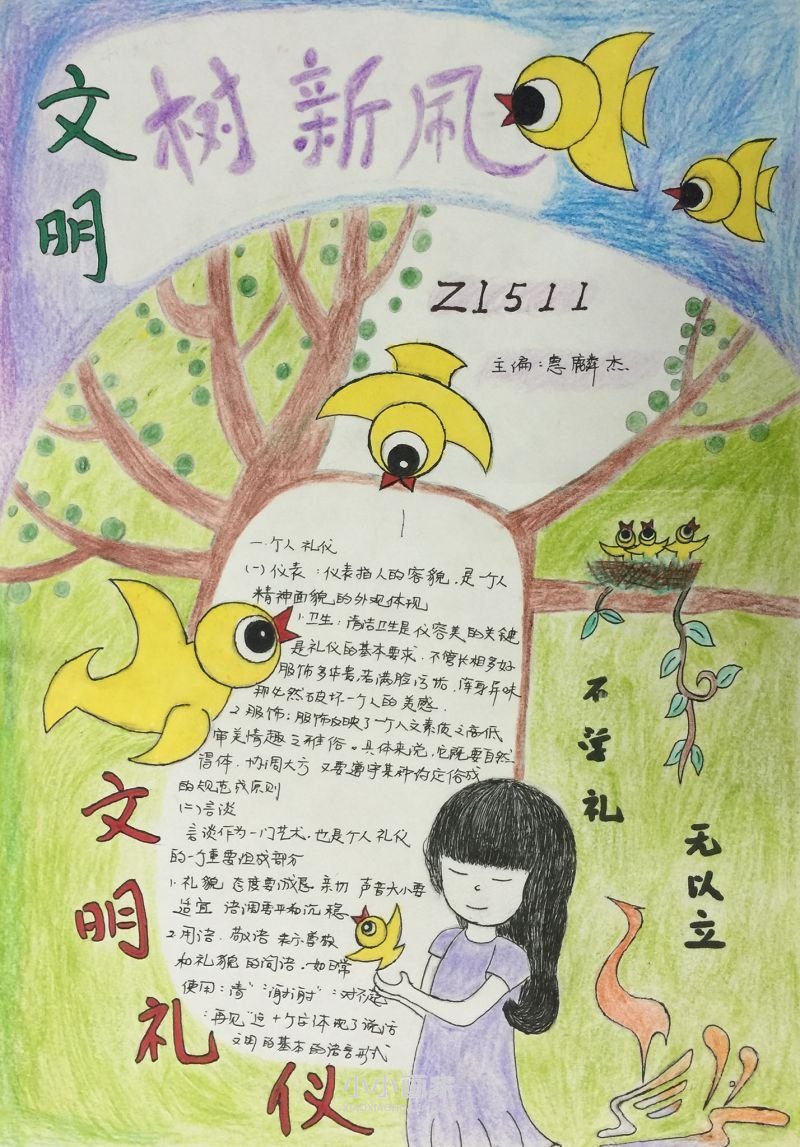 文明
树新风
Z1511
主编:惠麟杰
一.个人礼仪
(一)仪表:仪表指人的容貌,是一个人
精神面貌的外观体现
1.卫生:清洁卫生是仪容美的关键
是礼仪的基本要求.不管长相多好
服饰多华贵,若满脸污垢,浑身异味
那必然破坏一个人的美感.
2.服饰:服饰反映了一个人文素质之高低
审美情趣之雅俗。具体来说,它既要自然
得体.协调大方 又要遵守某种约定俗成
的规范或原则
(二)言谈
言谈作为一门艺术,也是个人礼仪
的一个重要组成部分
1.礼貌 态度要诚恳 亲切 声音大小要
适宜 语调要平和沉稳
2.用语.敬语 表示尊敬
和礼貌的词语.如日常
使用:"请""谢谢""对不起
"再见"这十个字体现了说话
文明的基本的语言形式
不学礼
无以立
文明礼仪
小小画家